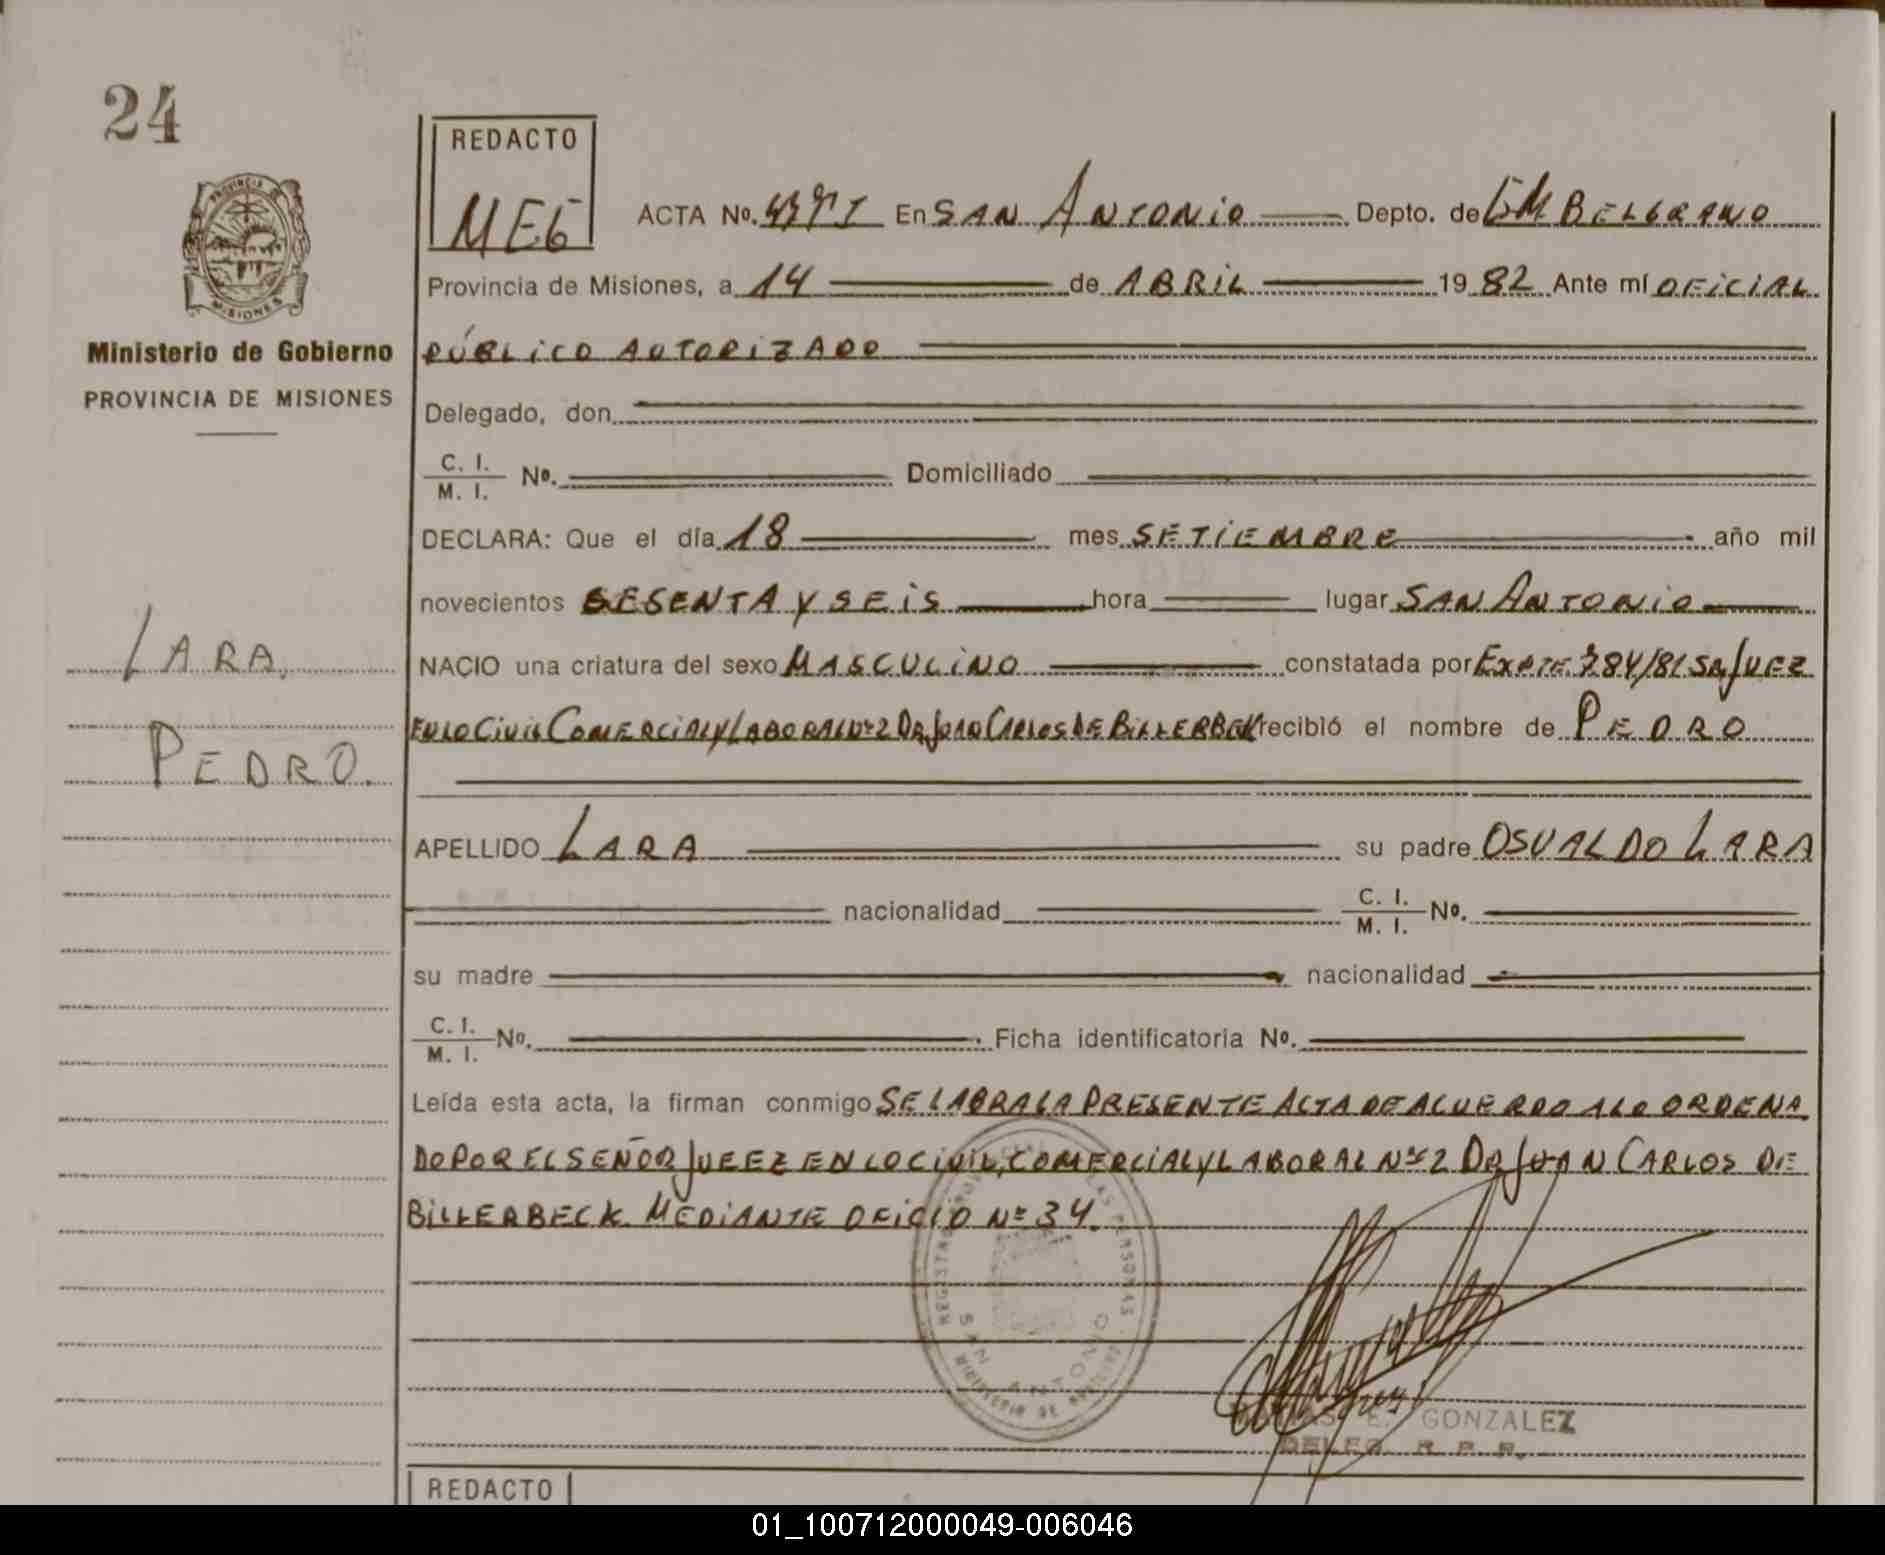 24
REDACTO
MEG
ACTA No. En SAN ANTONIO Depto. de GM BELGRANO
Provincia de Misiones, a 14 de ABRIL 1982 Ante mí OFICIAL
PÚBLICO AUTORIZADO
Ministerio de Gobierno
PROVINCIA DE MISIONES
Delegado, don
C. I.
M. I. No. Domiciliado
DECLARA: Que el día 18 mes SETIEMBRE año mil
novecientos SESENTA Y SEIS hora lugar SAN ANTONIO
LARA,
PEDRO.
NACIO una criatura del sexo MASCULINO constatada por EXPTE. 284/81 SR JUEZ
EN LO CIVIL COMERCIAL Y LABORAL Nº 2 DR JUAN CARLOS DE BILLERBEK recibió el nombre de PEDRO
APELLIDO LARA su padre OSVALDO LARA
nacionalidad C. I.
M. I. No.
su madre nacionalidad
C. I.
M. I. No. Ficha identificatoria No.
Leída esta acta, la firman conmigo SE LABRA LA PRESENTE ACTA DE ACUERDO A LO ORDENA
DO POR EL SEÑOR JUEEZ EN LO CIVIL, COMERCIAL Y LABORAL Nº 2 DR JUAN CARLOS DE
BILLERBECK MEDIANTE OFICIO Nº 34.
REGISTRO LAS PERSONAS
SAN ANTONIO
E. GONZALEZ
DELEG. R. P. P.
REDACTO
01_100712000049-006046